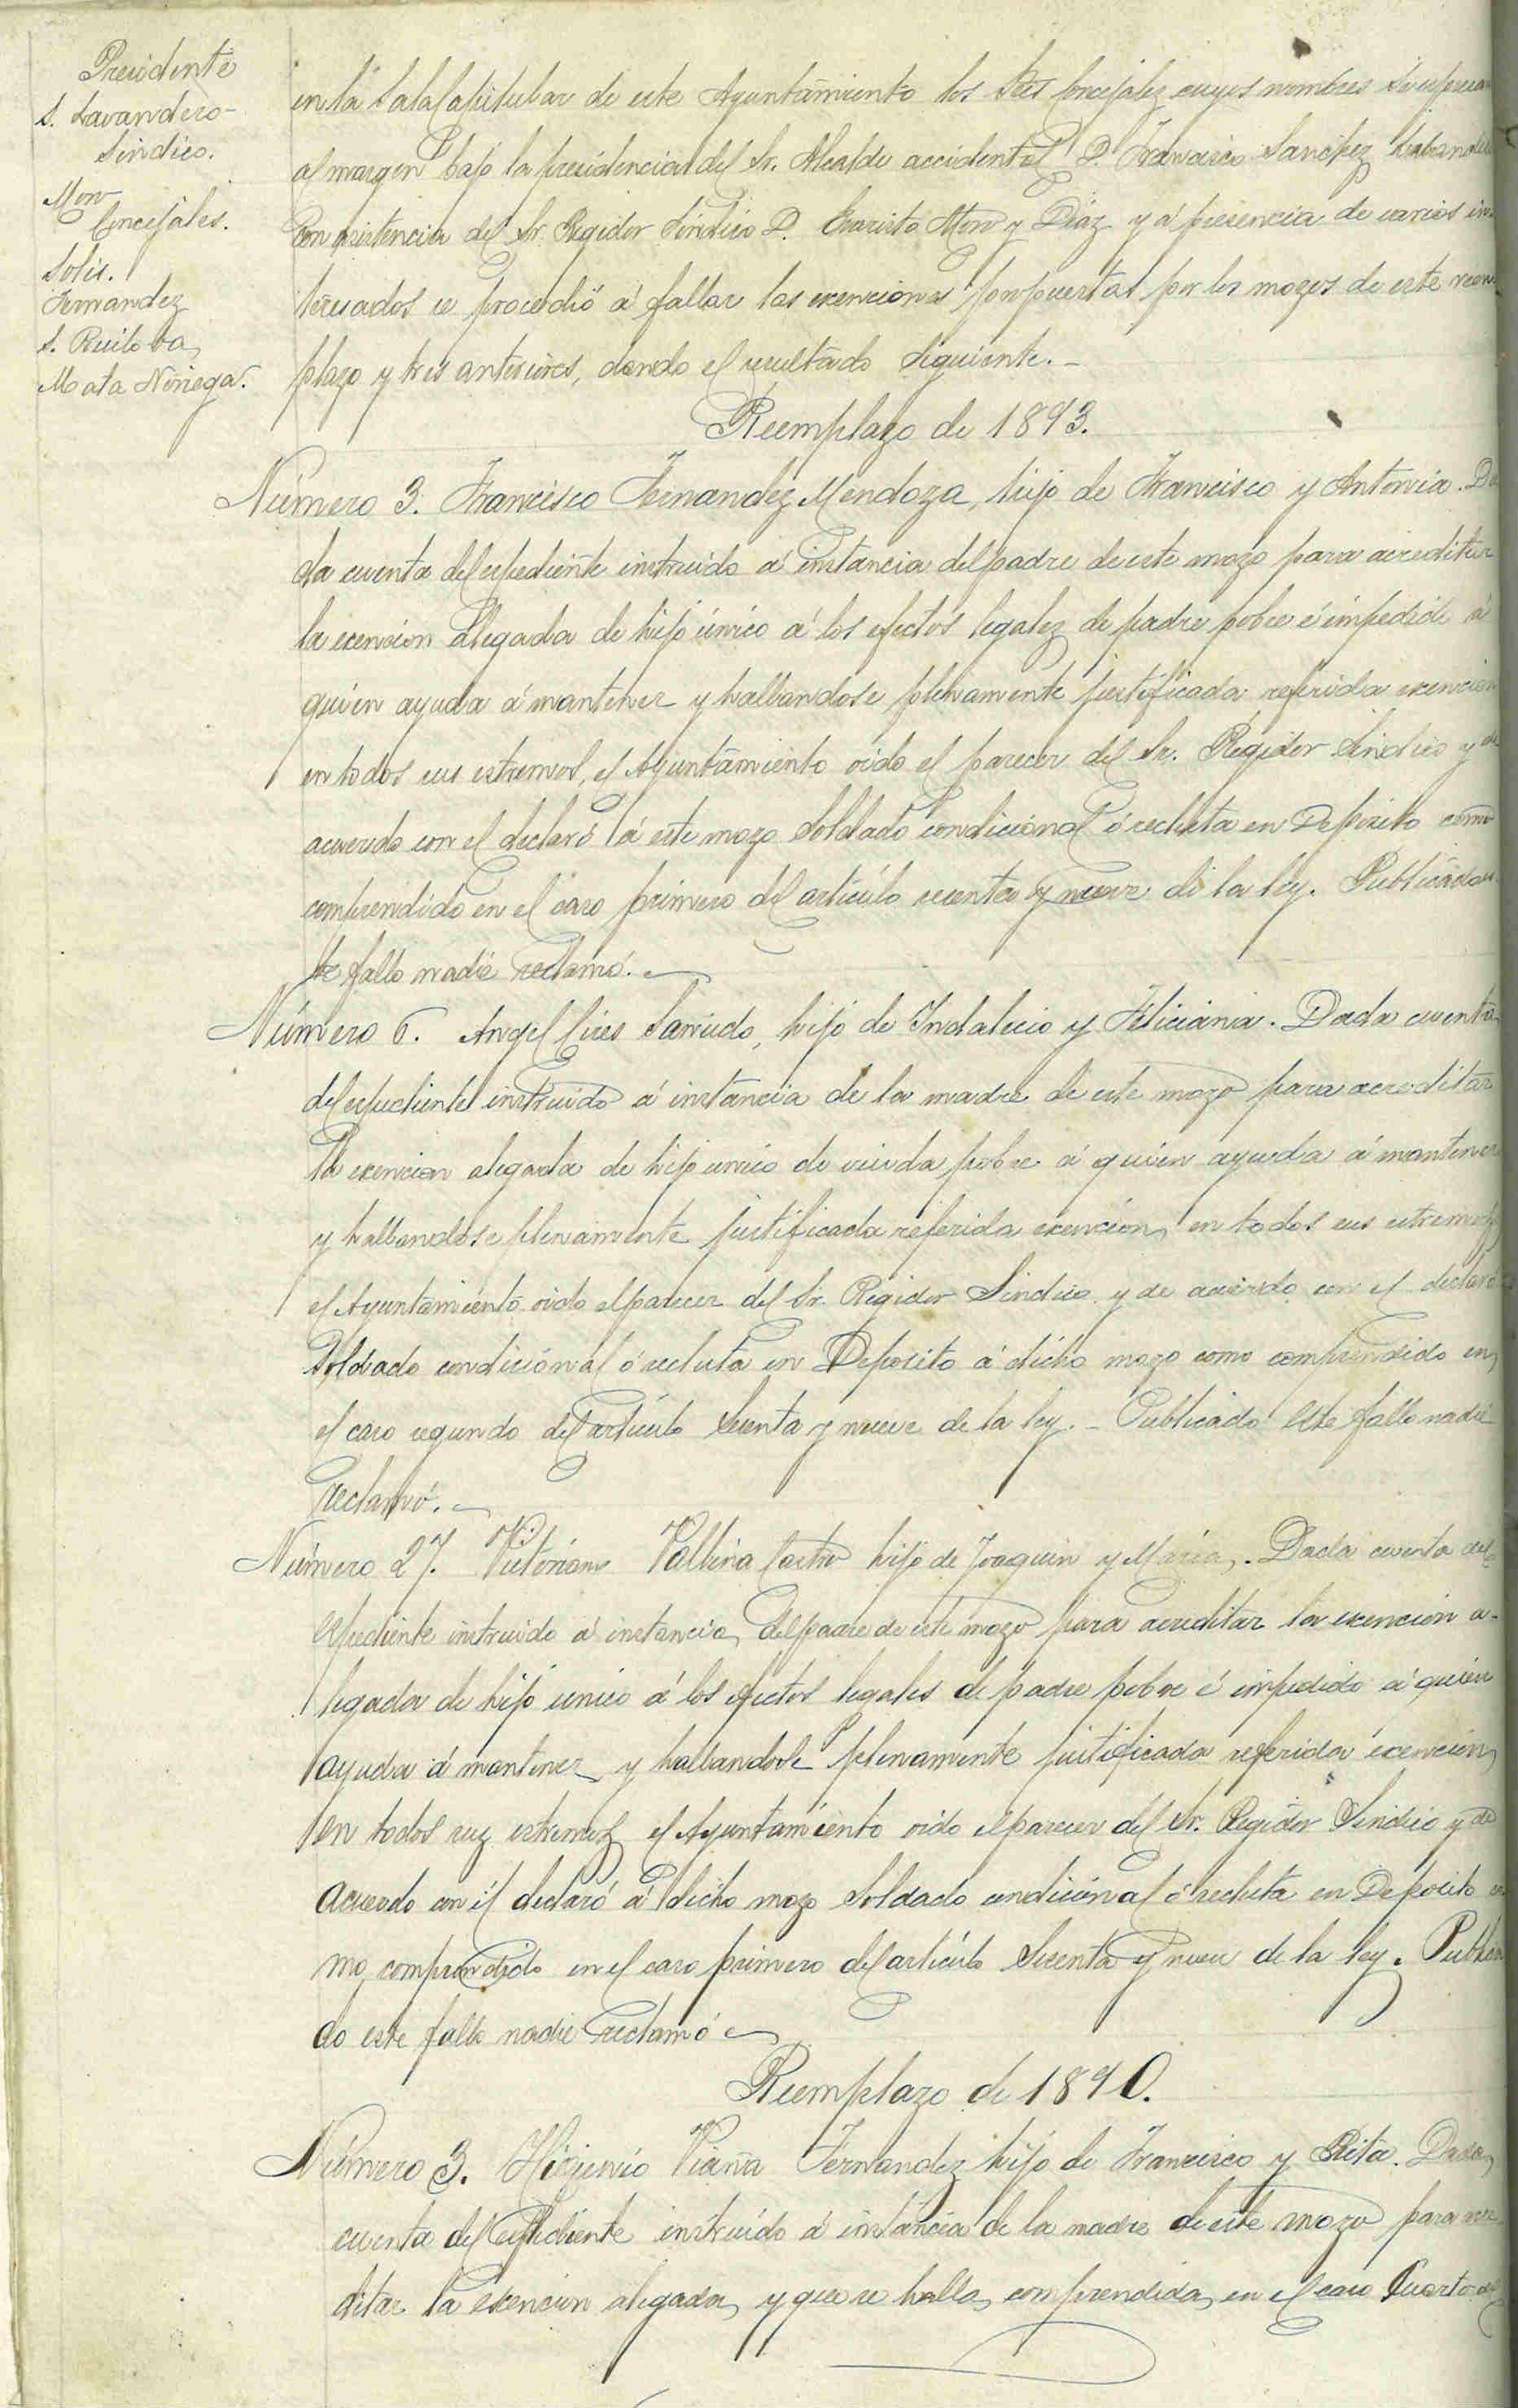 Presidente
S. Lavandero-
Sindico.
Mon
Concejales.
Solis.
Fernandez
S. Ruiloba
Mata Noriega.
en la Sala Capitular de este Ayuntamiento los Sres Concejalez cuyos nombres se espresan
al margen bajo la presidencia del Sr. Alcalde accidental D. Francisco Sanchez Labandero
con asistencia del Sr. Regidor Sindico D. Evaristo Mon y Diaz y á presencia de varios in-
teresados se procedió á fallar las exenciones propuestas por los mozos de este reem-
plazo y tres anteriores, dando el resultado siguiente.-
Reemplazo de 1893.
Número 3. Francisco Fernandez Mendoza, hijo de Francisco y Antonia. Da
da cuenta del espediente instruido á instancia del padre de este mozo para acreditar
la exencion alegada de hijo único á los efectos legalez de padre pobre é impedido á
quien ayuda á mantener y hallandose plenamente justificada referida exencion
en todos sus estremos, el Ayuntamiento oido el parecer del Sr. Regidor Sindico y de
acuerdo con el declaró á este mozo Soldado condicional ó recluta en Depósito como
comprendido en el caso primero del artículo sesenta y nueve de la ley. Publicado es
te fallo nadie reclamó.
Número 6. Angel Cires Sañudo, hijo de Indalecio y Feliciana. Dada cuenta
del espediente instruido á instancia de la madre de este mozo para acreditar
la exencion alegada de hijo unico de viuda pobre á quien ayuda á mantener
y hallandose plenamente justificada referida exencion en todos sus estremos,
el Ayuntamiento oido el parecer del Sr. Regidor Sindico y de acuerdo con el declaró
Soldado condicional ó recluta en Deposito á dicho mozo como comprendido en
el caso segundo del artículo Sesenta y nueve de la ley.- Publicado este fallo nadie
reclamó.
Número 27. Victoriano Valbina Castro hijo de Joaquin y Maria. Dada cuenta del
espediente instruido á instancia del padre de este mozo para acreditar la exencion a-
legada de hijo unico á los efectos legales de padre pobre é impedido á quien
ayuda á mantener y hallandose plenamente justificada referida exencion
en todos suz estremoz el Ayuntamiento oido el parecer del Sr. Regidor Sindico y de
acuerdo con él declaró á dicho mozo Soldado condicional ó recluta en Depósito co
mo comprendido en el caso primero del artículo Sesenta y nueve de la ley. Publica
do este fallo nadie reclamó
Reemplazo de 1890.
Número 3. Higinio Viaña Fernandez hijo de Francisco y Rita. Dada
cuenta del espediente instruido á instancia de la madre de este mozo para acre
ditar la exencion alegada y que se halla comprendida en el caso Cuarto del